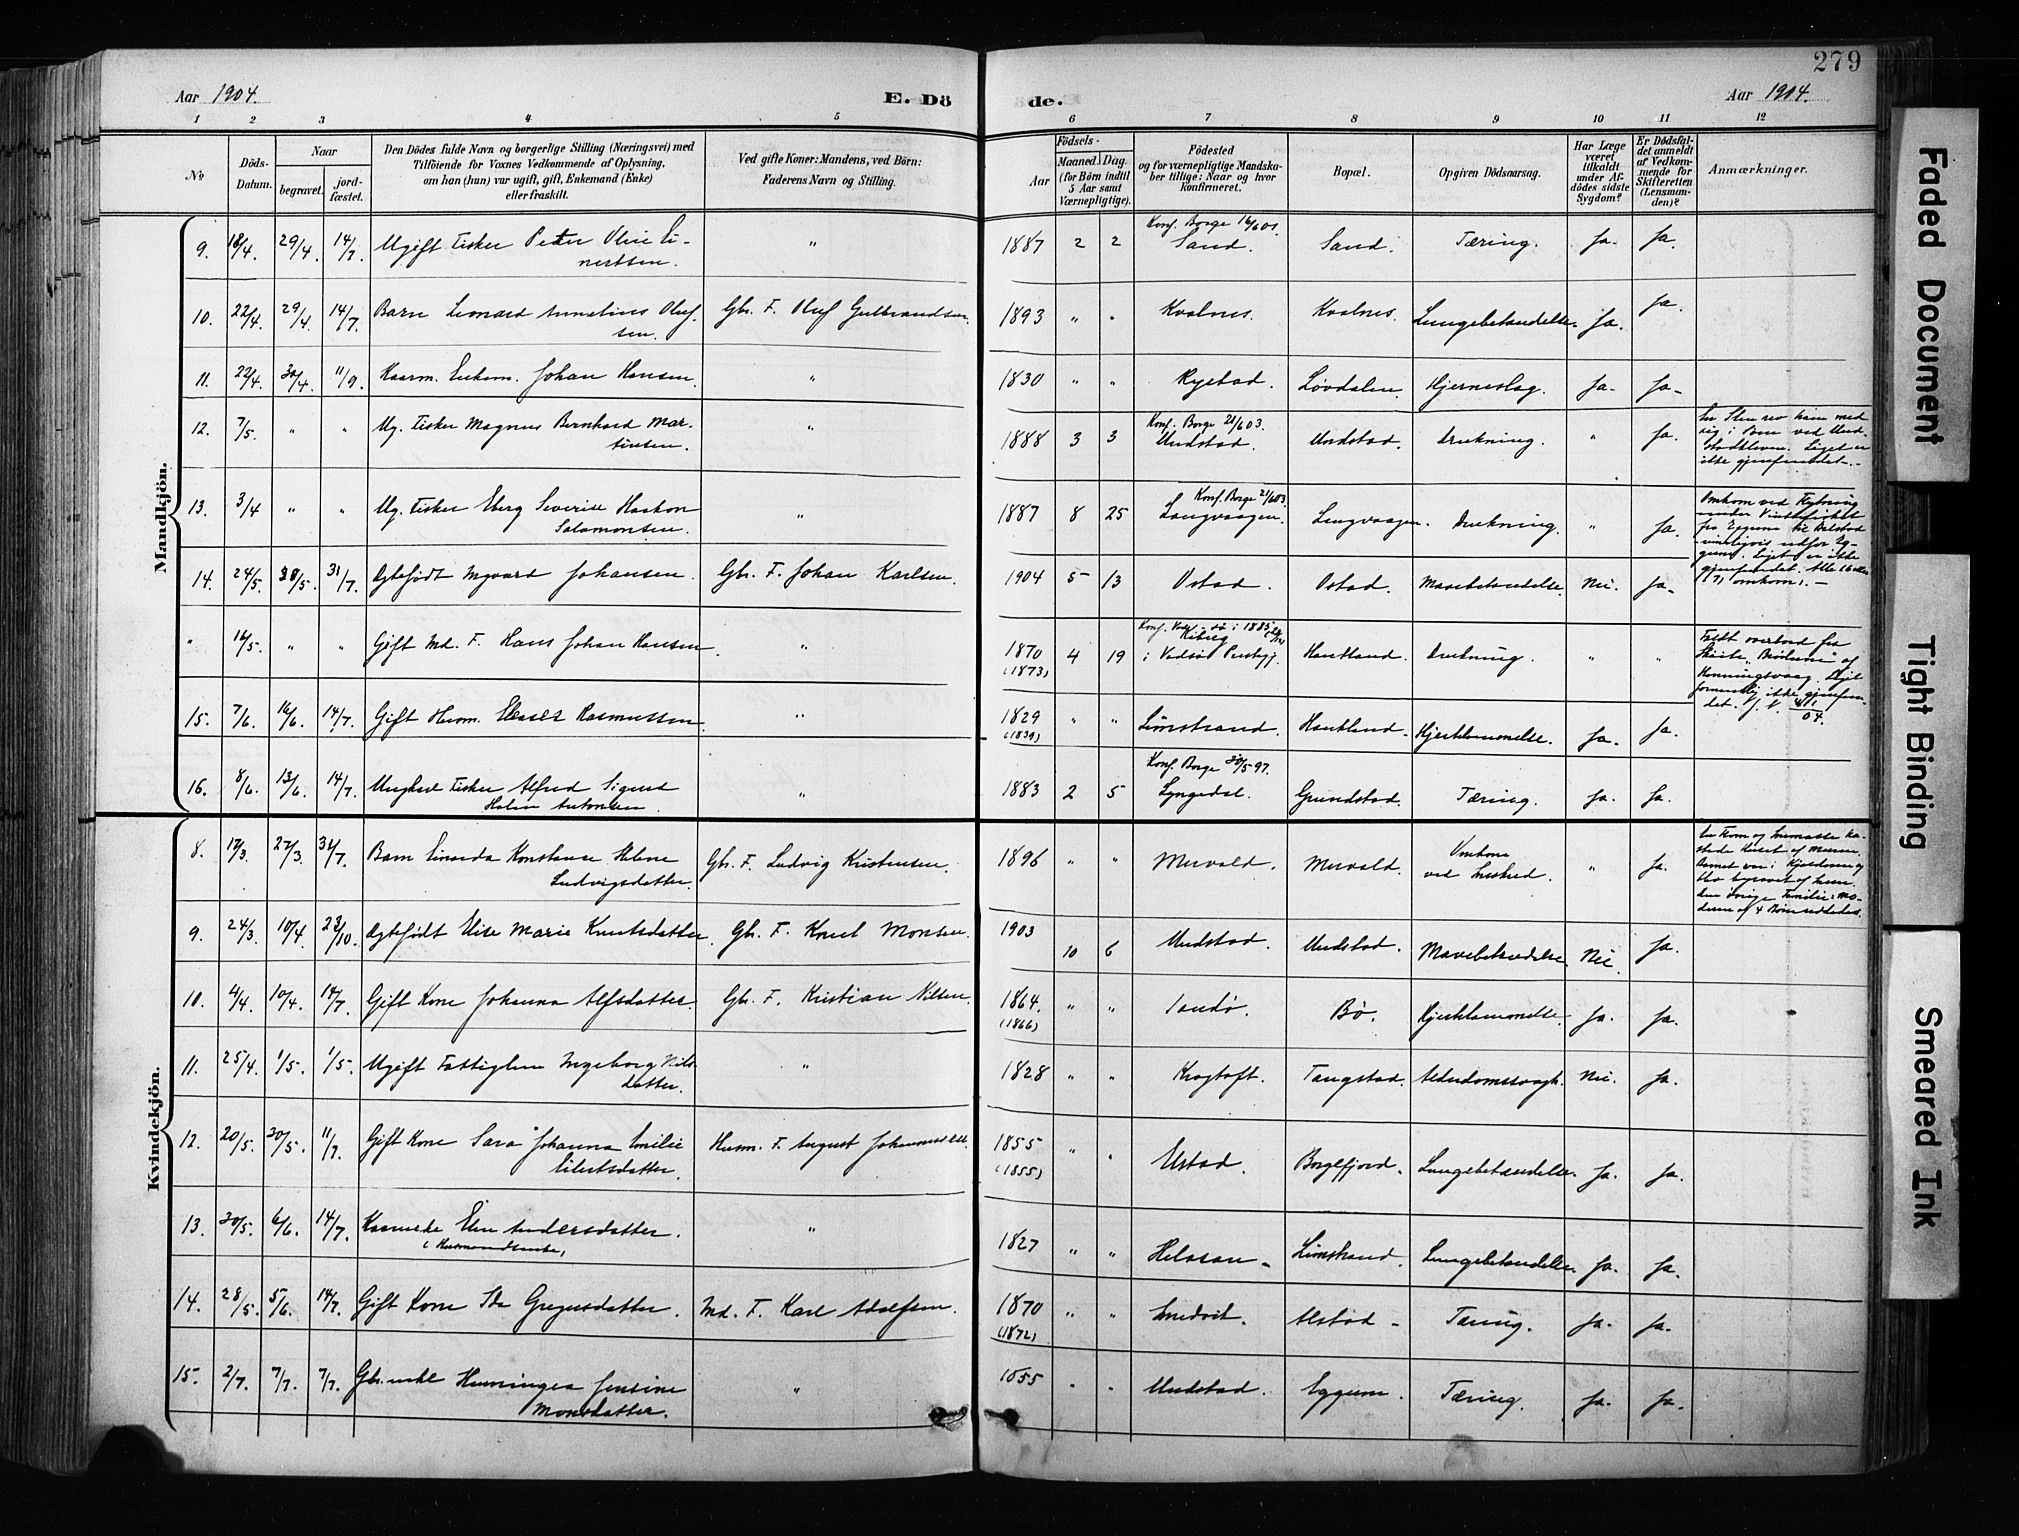 279
Aar 1904.
E. Dö
de.
Aar 1904.
1 2 3 4 5
6 7 8 9 10 11 12
No.
Döds-
Datum.
Naar
begravet.
jord-
fæstet.
Den Dödes fulde Navn og borgerlige Stilling (Næringsvei) med
Tilföiende for Voxnes Vedkommende af Oplysning,
om han (hun) var ugift, gift, Enkemand (Enke)
eller fraskilt.
Ved gifte Koner: Mandens, ved Börn:
Faderens Navn og Stilling.
Födsels-
Aar
Maaned. Dag.
(for Börn indtil
5 Aar samt
Værnepligtige).
Födested
og for værnepligtige Mandska-
ber tillige: Naar og hvor
Konfirmeret.
Bopæl.
Opgiven Dödsaarsag.
Har Læge
været
tilkaldt
under Af-
dödes sidste
Sygdom?
Er Dödsfal-
det anmeldt
af Vedkom-
mende for
Skifteretten
(Lensman-
den)?
Anmærkninger.
Mandkjön.
9. 18/4. 29/4. 14/7. Ugift Fisker Peter Olai Ei-
nertsen. " 1887 2 2 Konf. Borge
Sand. Sand. Tæring. Ja. Ja.
10. 22/4. 29/4. 14/7. Barn Leonard Annelius Oluf-
sen. Gbr. F. Oluf Gulbrandsen. 1893 " " Kvalnes. Kvalnes. Lungebetændelse. Ja. Ja.
11. 22/4. 30/4. 11/9. Kaarm. Enkem. Johan Hansen. " 1830 " " Rystad. Løvdalen. Hjerneslag. Ja. Ja.
12. 7/5. " " Ug. Fisker Magnus Bernhard Mar-
tinsen. " 1888 3 3 Konf. Borge 21/603.
Unstad. Unstad. Drukning. " Ja. En Sten rev ham med
sig i Båen ved Und-
stadkleven. Liget er
ikke gjenfundet.
13. 3/4 " " Ug. Fisker Eberg Severin Haakon
Salomonsen. " 1887 8 25 Konf. Borge 21/603
Langvaagen. Langvaagen. Drukning. " Ja. Omkom ved Flytning
under Vinterfisket
fra Eggum til Balstad
14. 24/5. 30/5. 31/7. Ægtefødt Ingvard Johansen. Gbr. F. Johan Karlsen. 1904 5 13 Ostad. Ostad. Mavebetændelse. Nei. Ja.
" 16/5. " " Gift Md. F. Hans Johan Hansen. " 1870
(1873) 4 19 Kiberg
i Vadsø Prestegj. Hautland. Drukning. " " Faldt overbord fra
Skøite
Honningsvaag. Liget
15. 7/6. 16/6. 14/7. Gift Husm. Elesæs Rasmussen. " 1829
(1839) " " Limstrand. Hautland. Hjerteklammelse. Ja. Ja.
16. 8/6. 13/6. 14/7. Ungkarl Fisker Alfred Sigurd
Holm Antonsen. " 1883 2 5 Konf. Borge 30/5 97.
Lyngedal. Grundstad. Tæring. Ja. Ja.
Kvindekjön.
8. 12/3. 27/3. 31/7. Barn Einarda Konstanse Helene
Ludvigsdatter. Gbr. F. Ludvig Kristensen. 1896 " " Mervold. Mervold. Omkom
ved Sneskred. " Ja.
9. 24/3. 10/4. 23/10. Ægtefødt Elise Marie Knutsdatter. Gbr. F. Knut Monsen. 1903 10 6 Undstad. Undstad. Mavebetændelse. Nei. Ja.
10. 4/4. 10/4. 14/7. Gift Kone Johanna Alfsdatter. Gbr. F. Kristian Nilsen. 1864.
(1866) " " Sandø. Bø. Hjerteklammelse. Ja. Ja.
11. 25/4. 1/5. 1/5. Ugift Fattiglem Ingeborg Nils-
datter. " 1828 " " Krogtoft. Tangstad. Alderdomssvagh. Nei. Ja.
12. 20/5. 30/5. 11/7. Gift Kone Sara Johanna Emilie
Eilertsdatter. Husm. F. August Johannessen. 1855
(1855) " " Ustad. Borgefjord. Lungebetændelse. Ja. Ja.
13. 30/5. 6/6. 14/7. Kaarenke Elen Andersdatter.
(Husmandsenke) " 1827 " " Helosan. Limstrand. Lungebetændelse. Ja. Ja.
14. 28/5. 5/6. 14/7. Gift Kone Ida Gregusdatter. Md. F. Karl Adolfsen. 1870
(1872) " " Smedvik. Alstad. Tæring. Ja. Ja.
15. 2/7. 7/7. 7/7. Gbr.enke Henningea Jensine
Monsdatter. " 1855 " " Undstad. Eggum. Tæring. Ja. Ja.
Faded Document
Tight Binding
Smeared Ink